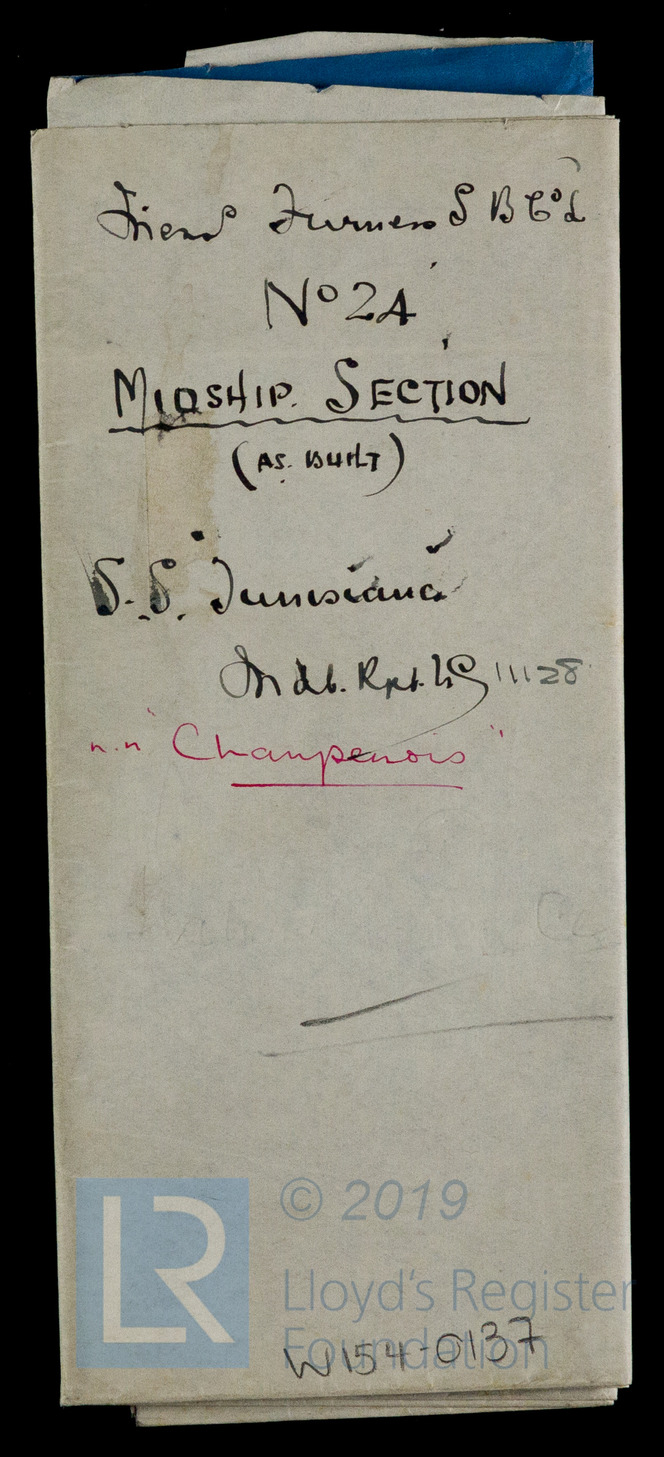 Messrs Furness S B Co Ld
No 24
MIDSHIP. SECTION
(AS. BUILT)
S.S. Tunisiana
Mdb. Rpt. No 11128
n.n "Champenois"
LR
© 2019
Lloyd's Register
Foundation
W154-0137